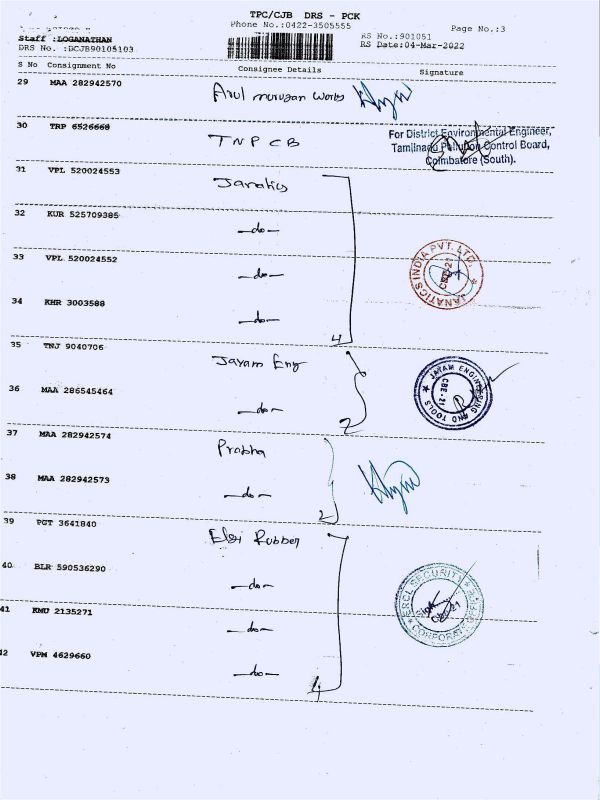 TPC/CJB DRS - PCK
Phone No.:0422-3505555
Page No.:3
Staff :LOGANATHAN
RS No.:901051
DRS No. :DCJB90105103
RS Date:04-Mar-2022
S No Consignment No Consignee Details Signature
29 MAA 282942570 Arul murugan works
30 TRP 6526668 TNPCB
For District Environmental Engineer,
Tamilnadu Pollution Control Board,
Coimbatore (South).
31 VPL 520024553 Janatics
32 KUR 525709385 -do-
33 VPL 520024552 -do-
JANATICS INDIA PVT. LTD.
CBE-21
34 KHR 3003588 -do-
4
35 TNJ 9040706 Jayam Eng
JARAM ENGINEERING AND TOOLS
CBE-21
36 MAA 286545464 -do-
2
37 MAA 282942574 Prabha
38 MAA 282942573 -do-
2
39 PGT 3641840 Elgi Rubber
40 BLR 590536290 -do-
ERCL SECURITY
CORPORATE OFFICE
41 KMU 2135271 -do-
42 VPM 4629660 -do-
4